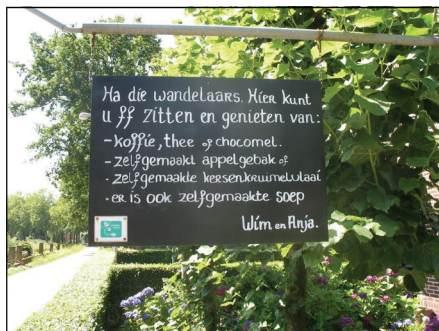 Ha die wandelaars. Hier kunt
u ff zitten en genieten van:
- koffie, thee of chocomel.
- zelfgemaakt appelgebak of
- zelfgemaakte kersenkruimelvlaai
- er is ook zelfgemaakte soep
Wim en Anja.